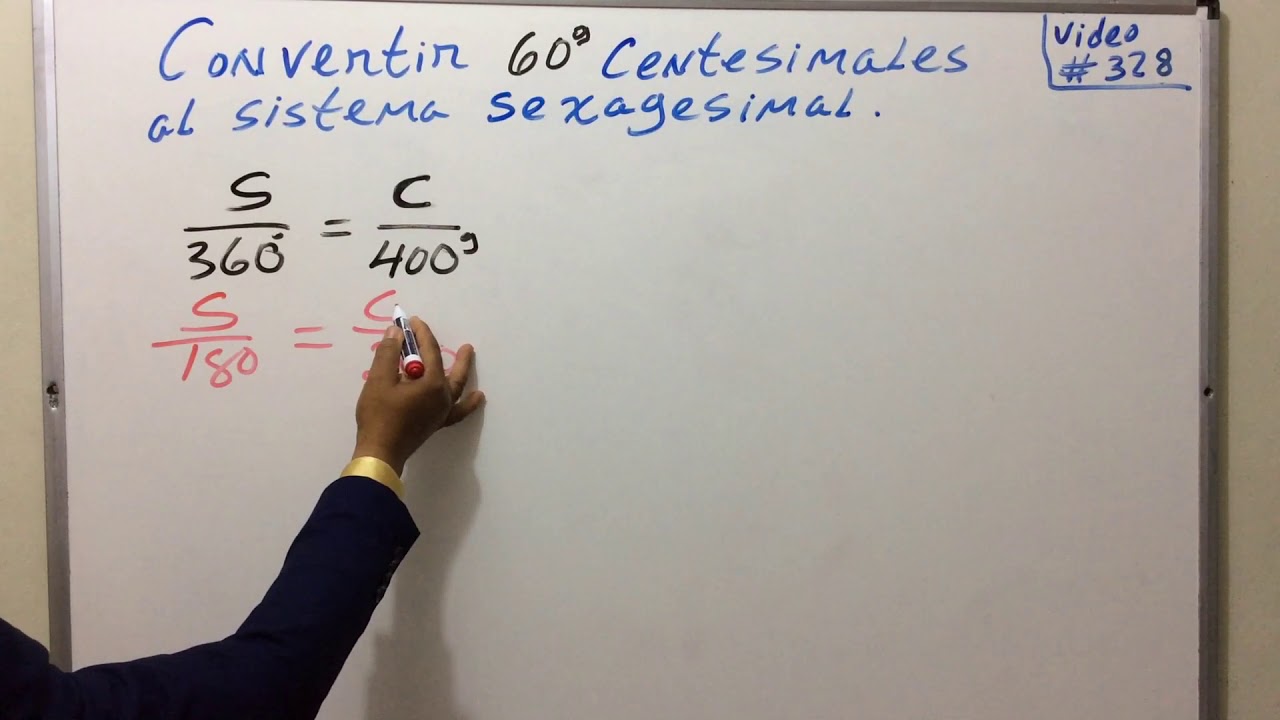 Convertir 60ᵍ Centesimales
al sistema sexagesimal.
Video
# 328
S/360° = C/400ᵍ
S/180 = C